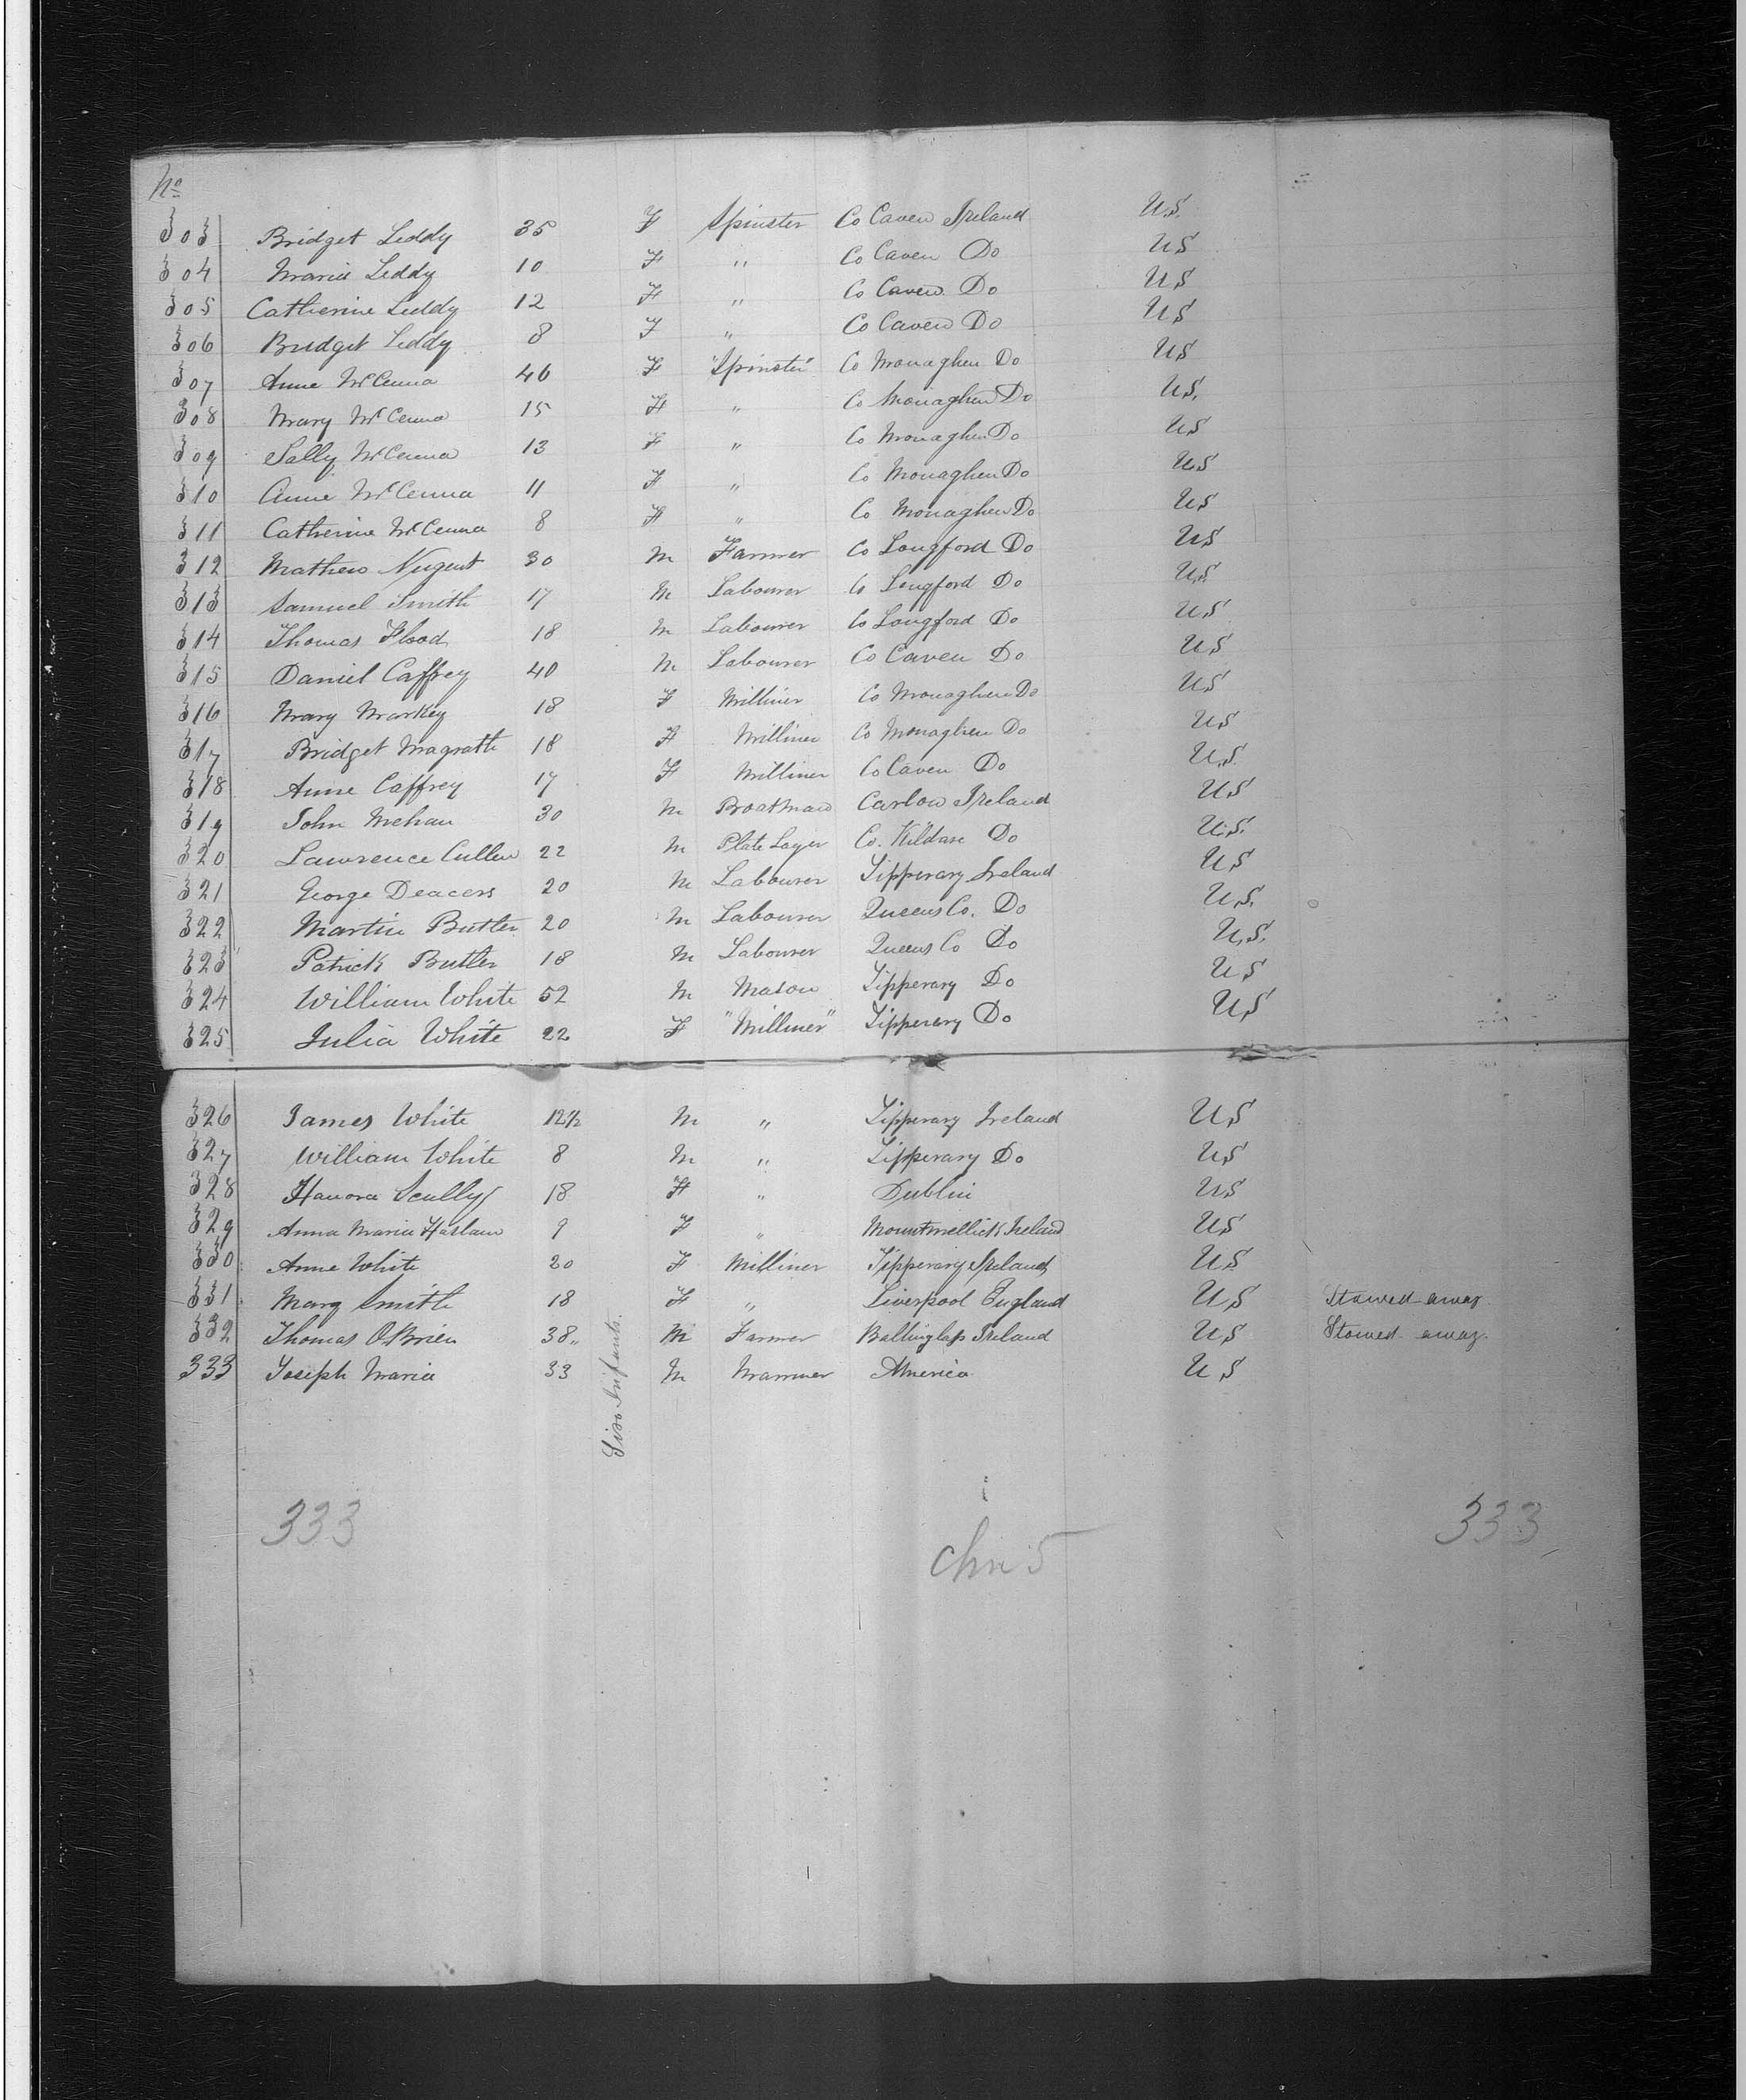 No
303 Bridget Leddy 35 F Spinster Co Caven Ireland U.S.
304 Maria Leddy 10 F " Co Caven Do US
305 Catherine Leddy 12 F " Co Caven Do US
306 Bridget Leddy 8 F " Co Caven Do US
307 Anne McCenna 46 F "Spinster" Co Monaghen Do US
308 Mary McCenna 15 F " Co Monaghen Do U.S.
309 Sally McCenna 13 F " Co Monaghen Do US
310 Annie McCenna 11 F " Co Monaghen Do US
311 Catherine McCenna 8 F " Co Monaghen Do US
312 Mathew Nugent 30 M Farmer Co Longford Do US
313 Samuel Smith 17 M Labourer Co Longford Do U.S.
314 Thomas Flood 18 M Labourer Co Longford Do US
315 Daniel Caffrey 40 M Labourer Co Caven Do US
316 Mary Markey 18 F Milliner Co Monaghen Do US
317 Bridget Magrath 18 F Milliner Co Monaghen Do US
318 Anne Caffrey 17 F Milliner Co Caven Do U.S.
319 John Mehan 30 M Boatman Carlow Ireland US
320 Lawrence Cullen 22 M Plate Layer Co. Kildare Do U.S.
321 George Deacers 20 M Labourer Tipperary Ireland US
322 Martin Butler 20 M Labourer Queens Co. Do U.S.
323 Patrick Butler 18 M Labourer Queens Co Do U.S.
324 William White 52 M Mason Tipperary Do US
325 Julia White 22 F "Milliner" Tipperary Do US
326 James White 12½ M " Tipperary Ireland US
327 William White 8 M " Tipperary Do US
328 Hanora Scully 18 F " Dublin US
329 Anna Maria Haslam 9 F " Mountmellick Ireland US
330 Anne White 20 F Milliner Tipperary Ireland US
331 Mary Smith 18 F " Liverpool England US Stowed away
332 Thomas OBrien 38 M Farmer Ireland US Stowed away.
333 Joseph Maria 33 M Marriner America US
Infants.
333 333
5